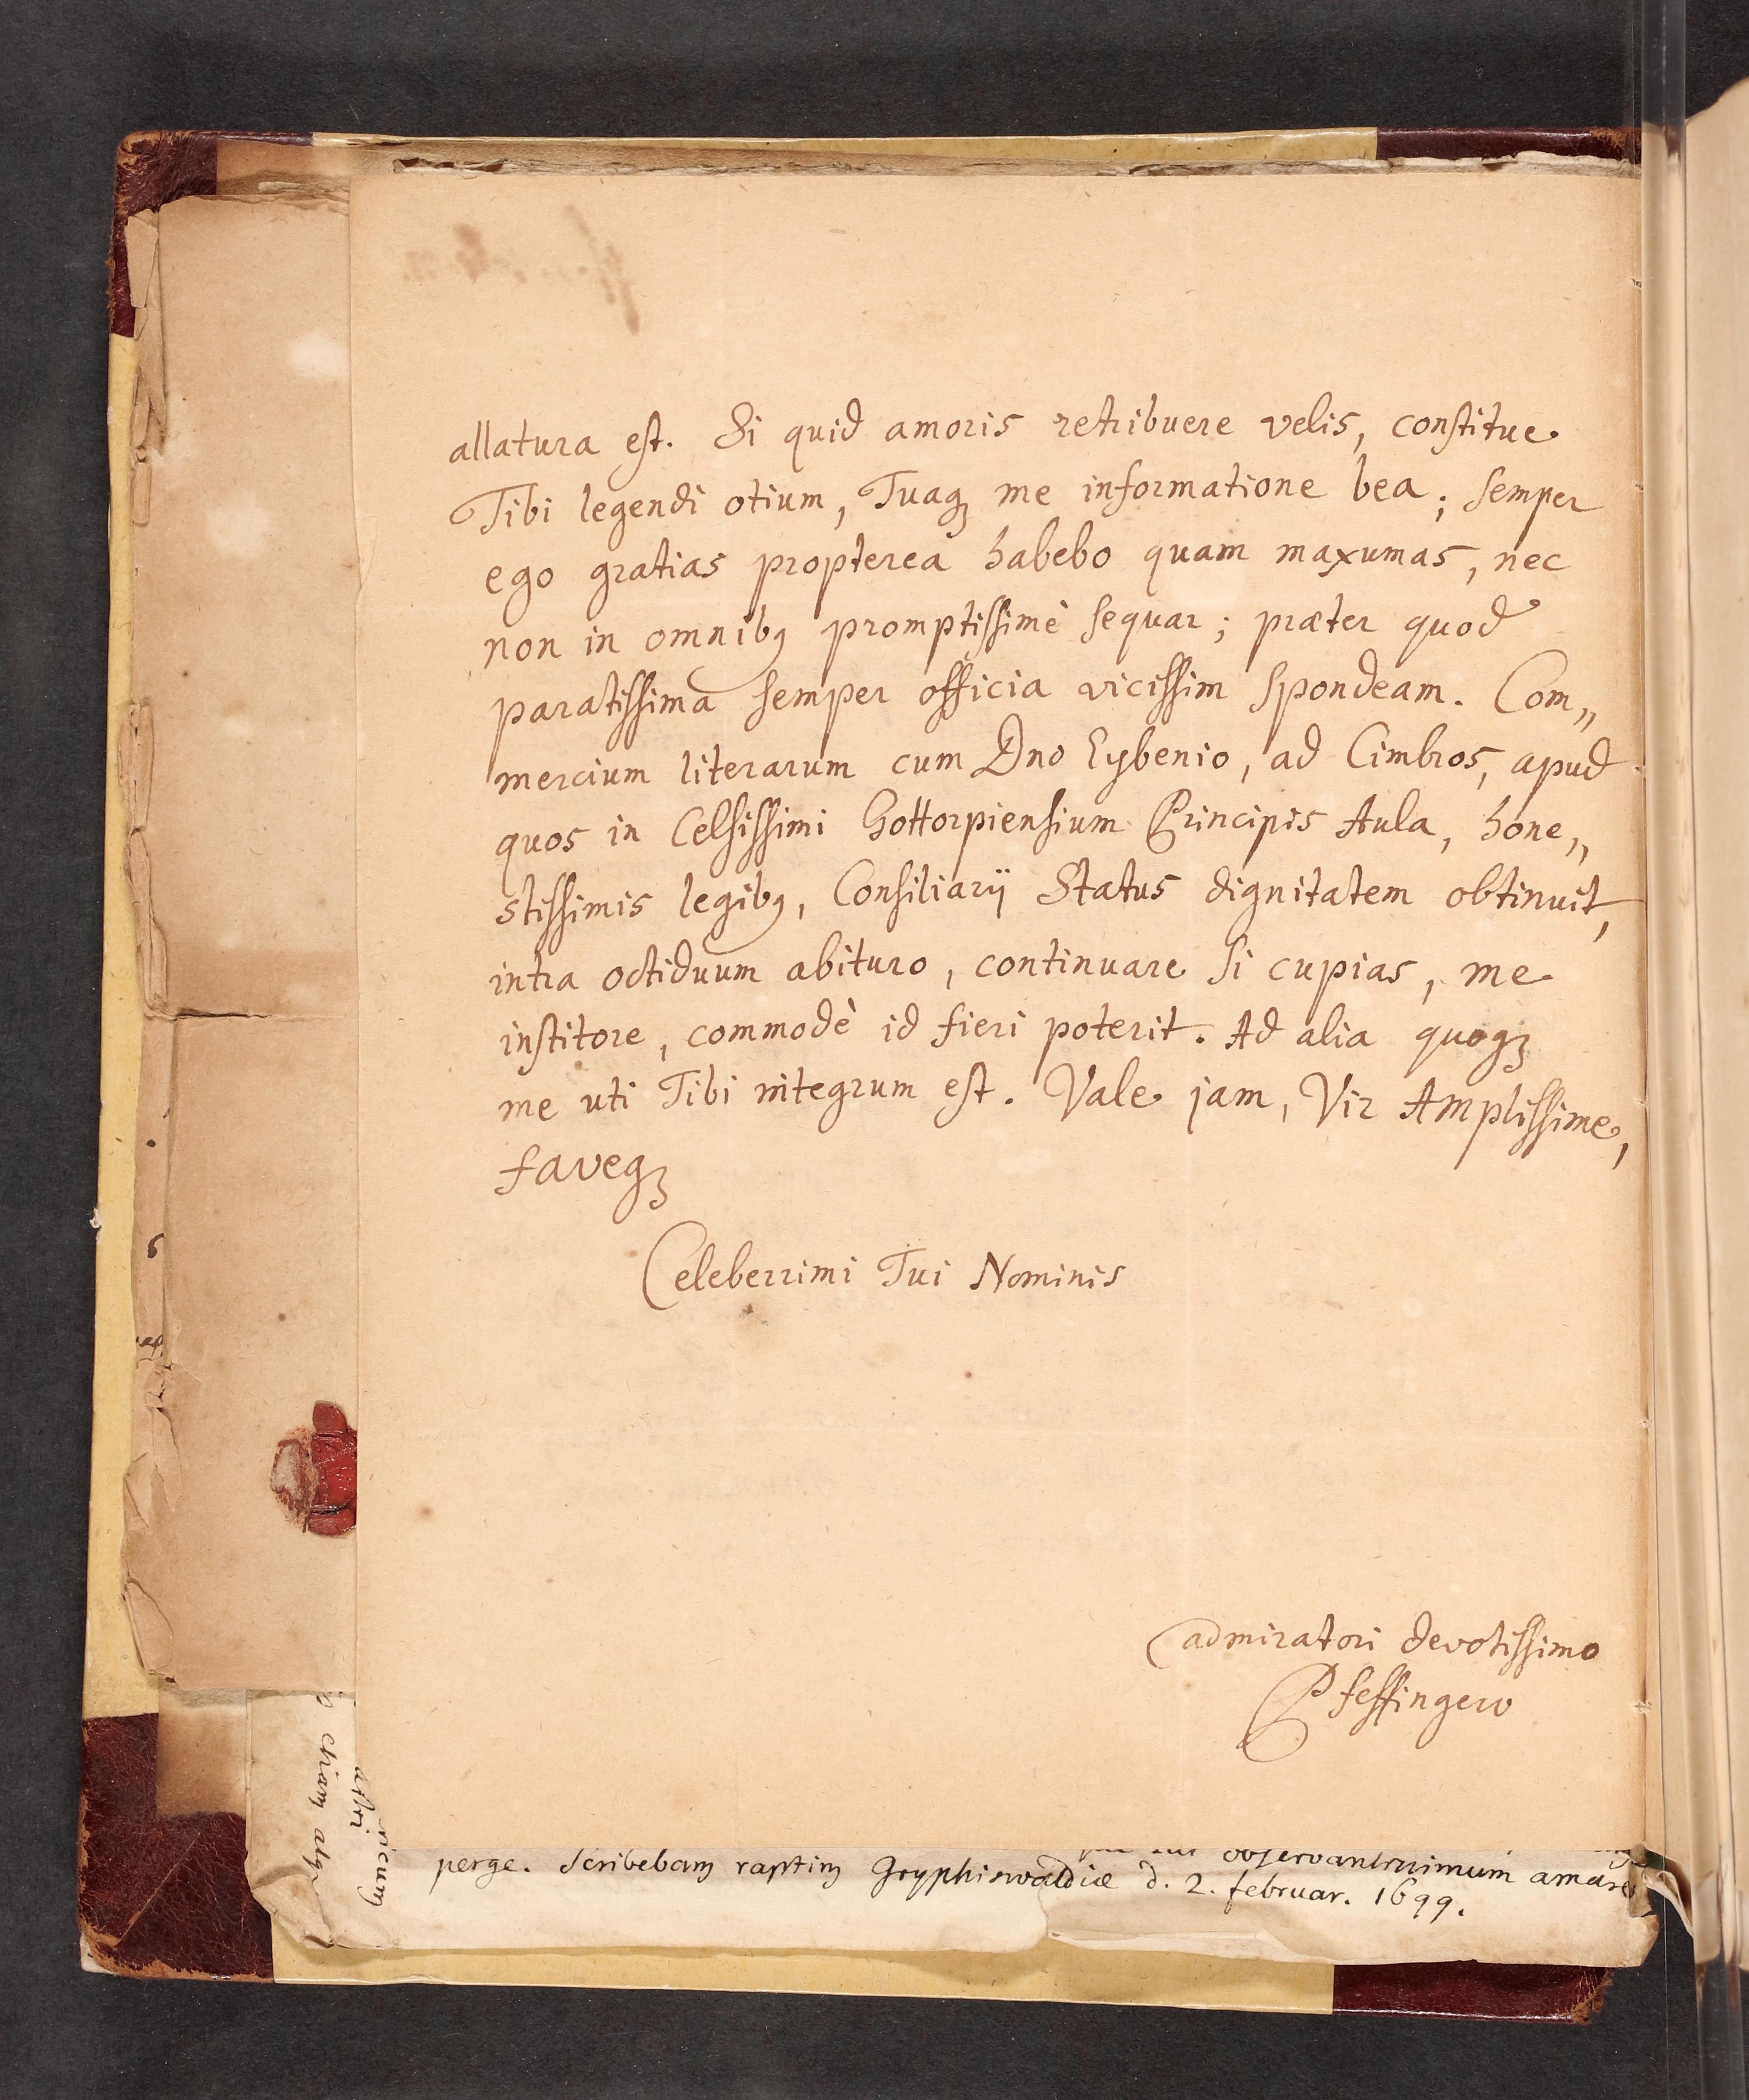 allatura est. Si quid amoris retribuere velis, constitue
Tibi legendi otium, Tuaq; me informatione bea; semper
ego gratias propterea habebo quam maxumas, nec
non in omnib; promptissimè sequar; præter quod
paratissima semper officia vicissim spondeam. Com„
mercium literarum cum Dno Eybenio, ad Cimbros, apud
quos in Celsissimi Gottorpiensium Principis Aula, hone„
stissimis legib;, Consiliarij Status dignitatem obtinuit,
intra octiduum abituro, continuare si cupias, me
institore, commodè id fieri poterit. Ad alia quoq;
me uti Tibi integrum est. Vale jam, Vir Amplissime,
faveq;
Celeberrimi Tui Nominis
admiratori devotissimo
Pfeffingero
observantissimum amare
perge. Scribebam raptim Gryphiswaldiæ d. 2. februar. 1699.
etiam atq